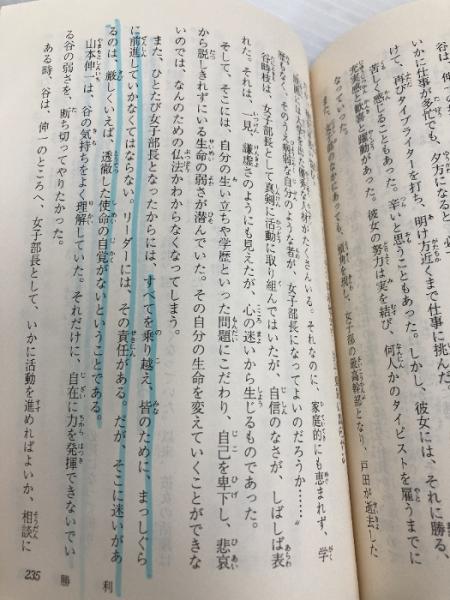 いかに仕事が多忙でも、夕方になる
けて、再びタイプライターを打ち、明け方近くまで仕事に挑んだ
苦しく感じることもあった。辛いと思うこともあった。しかし、彼女には、それに勝る、
充実感と歓喜と躍動があった。彼女の努力は実を結び、何人かのタイピストを雇うまでに
なっていた。
女子部の最高幹部となり、戸田が逝去した
優秀な人材がたくさんいる。それなのに、家庭的にも恵まれず、学
歴もなく、そのうえ病弱な自分のような者が、女子部長になってよいのだろうか……
谷時枝は、女子部長として真剣に活動に取り組んではいたが、自信のなさが、しばしば表
れた。それは、一見、謙虚さのようにも見えたが、心の迷いから生じるものであった。
そして、そこには、自分の生い立ちや学歴といった問題にこだわり、自己を卑下し、悲哀
から脱しきれずにいる生命の弱さが潜んでいた。その自分の生命を変えていくことができな
いのでは、なんのための仏法かわからなくなってしまう。
また、ひとたび女子部長となったからには、すべてを乗り越え、皆のために、まっしぐら
に前進していかなくてはならない。リーダーには、その責任がある。だが、そこに迷いがあ
るのは、厳しくいえば、透徹した使命の自覚がないということである。
山本伸一は、谷の気持ちをよく理解していた。それだけに、自在に力を発揮できないでい
る谷の弱さを、断ち切ってやりたかった。
ある時、谷は、伸一のところへ、女子部長として、いかに活動を進めればよいか、相談に
235 勝利